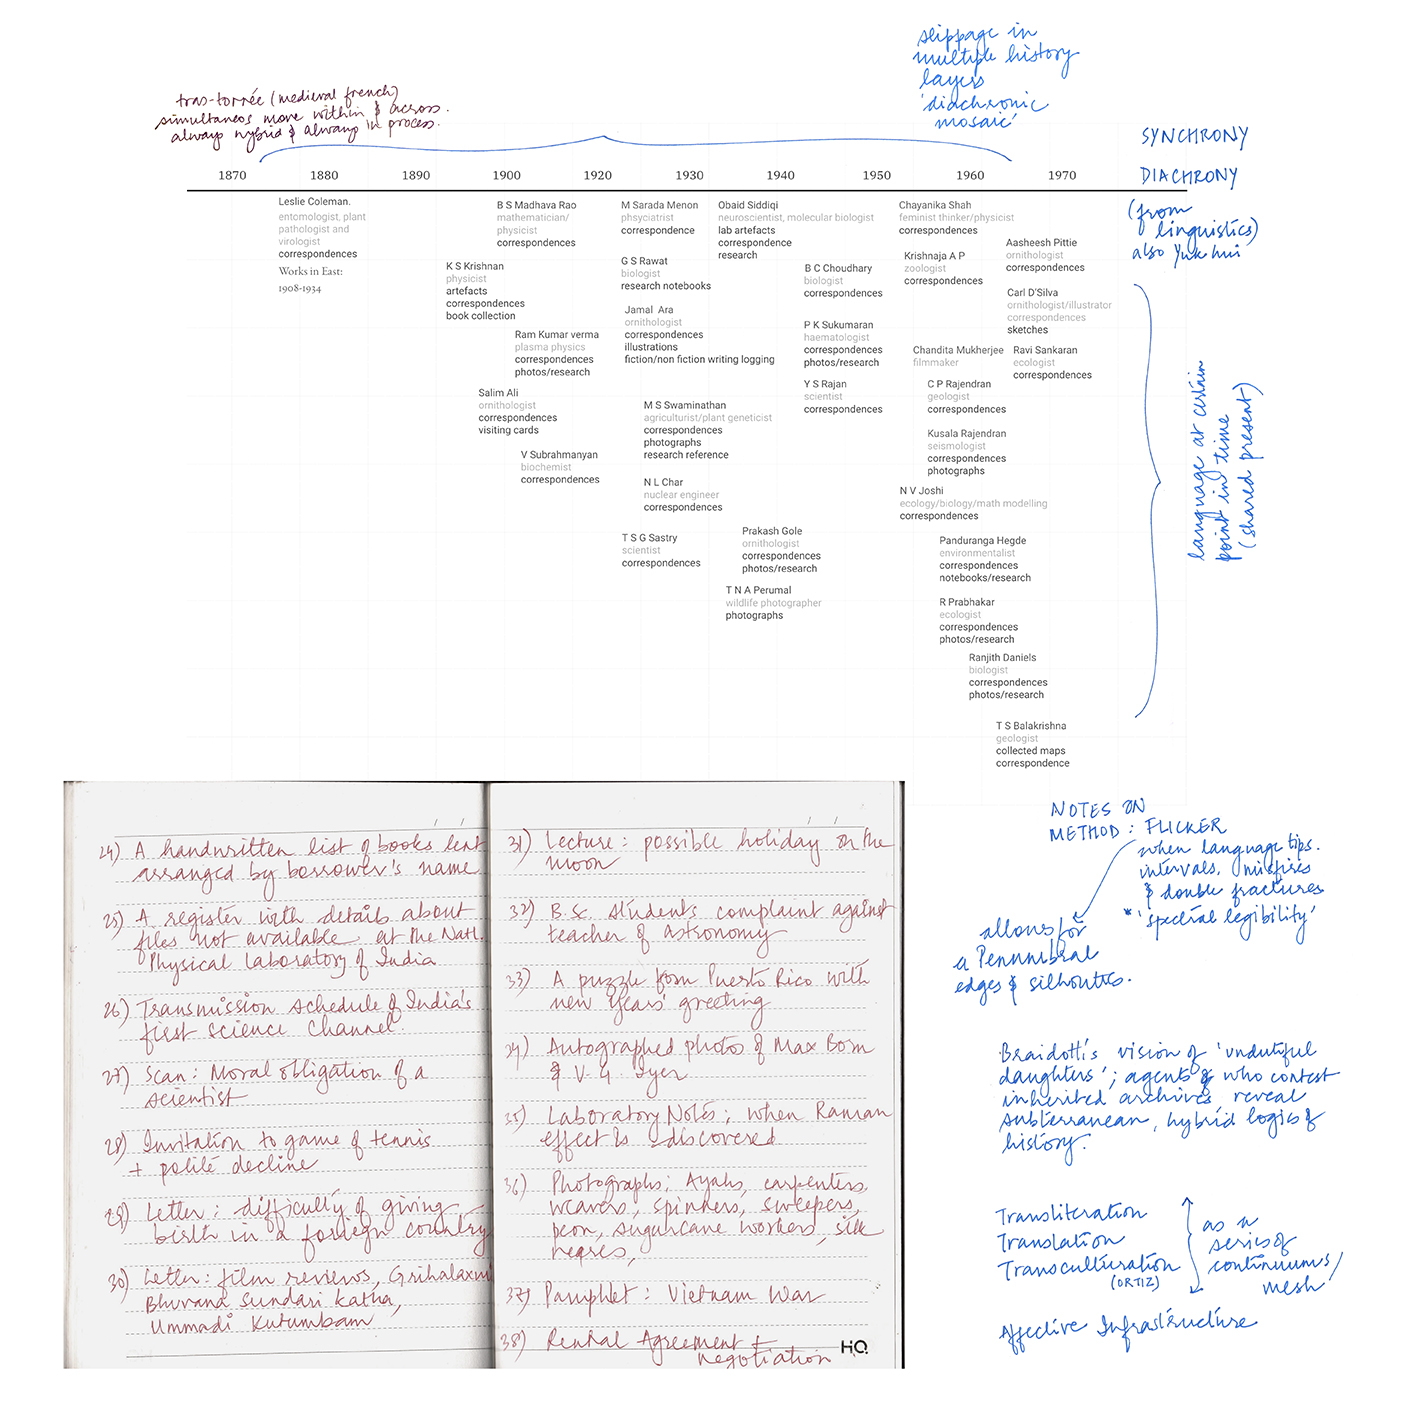 slippage in
multiple history
layers
'diachronic
mosaic'
tras-torrée (medieval french)
simultaneos move within & across.
always hybrid & always in process.
SYNCHRONY
DIACHRONY
(from
linguistics)
also Yuk hui
1870 1880 1890 1900 1920 1930 1940 1950 1960 1970
Leslie Coleman.
entomologist, plant
pathologist and
virologist
correspondences
Works in East:
1908-1934
B S Madhava Rao
mathematician/
physicist
correspondences
K S Krishnan
physicist
artefacts
correspondences
book collection
Ram Kumar verma
plasma physics
correspondences
photos/research
Salim Ali
ornithologist
correspondences
visiting cards
V Subrahmanyan
biochemist
correspondences
M Sarada Menon
phsyciatrist
correspondence
G S Rawat
biologist
research notebooks
Jamal Ara
ornithologist
correspondences
illustrations
fiction/non fiction writing logging
M S Swaminathan
agriculturist/plant geneticist
correspondences
photographs
research reference
N L Char
nuclear engineer
correspondences
T S G Sastry
scientist
correspondences
Obaid Siddiqi
neuroscientist, molecular biologist
lab artefacts
correspondence
research
Prakash Gole
ornithologist
correspondences
photos/research
T N A Perumal
wildlife photographer
photographs
B C Choudhary
biologist
correspondences
P K Sukumaran
haematologist
correspondences
photos/research
Y S Rajan
scientist
correspondences
Chayanika Shah
feminist thinker/physicist
correspondences
Krishnaja A P
zoologist
correspondences
Chandita Mukherjee
filmmaker
C P Rajendran
geologist
correspondences
Kusala Rajendran
seismologist
correspondences
photographs
N V Joshi
ecology/biology/math modelling
correspondences
Panduranga Hegde
environmentalist
correspondences
notebooks/research
R Prabhakar
ecologist
correspondences
photos/research
Ranjith Daniels
biologist
correspondences
photos/research
T S Balakrishna
geologist
collected maps
correspondence
Aasheesh Pittie
ornithologist
correspondences
Carl D'Silva
ornithologist/illustrator
correspondences
sketches
Ravi Sankaran
ecologist
correspondences
language at certain
point in time
(shared present)
24) A handwritten list of books lent
arranged by borrower's name
25) A register with details about
files not available at the Natl.
Physical laboratory of India
26) Transmission schedule of India's
first science channel.
27) Scan: Moral obligation of a
scientist
28) Invitation to game of tennis
+ polite decline
29) Letter: difficulty of giving
birth in a foriegn country
30) Letter: film reviews, Grihalaxmi
Bhuvana Sundari Katha,
Ummadi Kutumbam
31) Lecture: possible holiday on the
moon
32) B.Sc. students complaint against
teacher of astronomy
33) A puzzle from Puerto Rico with
new years' greeting
34) Autographed photos of Max Born
& V. G. Iyer
35) Laboratory Notes; when Raman
effect is discovered
36) Photographs: Ayahs, carpenters,
weavers, spinners, sweepers,
peon, sugarcane workers, silk
37) Pamphlet: Vietnam War
38) Rental Agreement +
negotiation
HQ
NOTES ON
METHOD: FLICKER
when language tips.
intervals, misfires
& double fractures
* 'spectral legibility'
allows for
a Penumbral
edges & silhouttes.
Braidotti's vision of 'undutiful
daughters'; agents who contest
inherited archives reveal
subterranean, hybrid logics of
history.
Transliteration
Translation
Transculturation
(ORTIZ)
as a
series of
continuums/
mesh
Affective Infrastructure